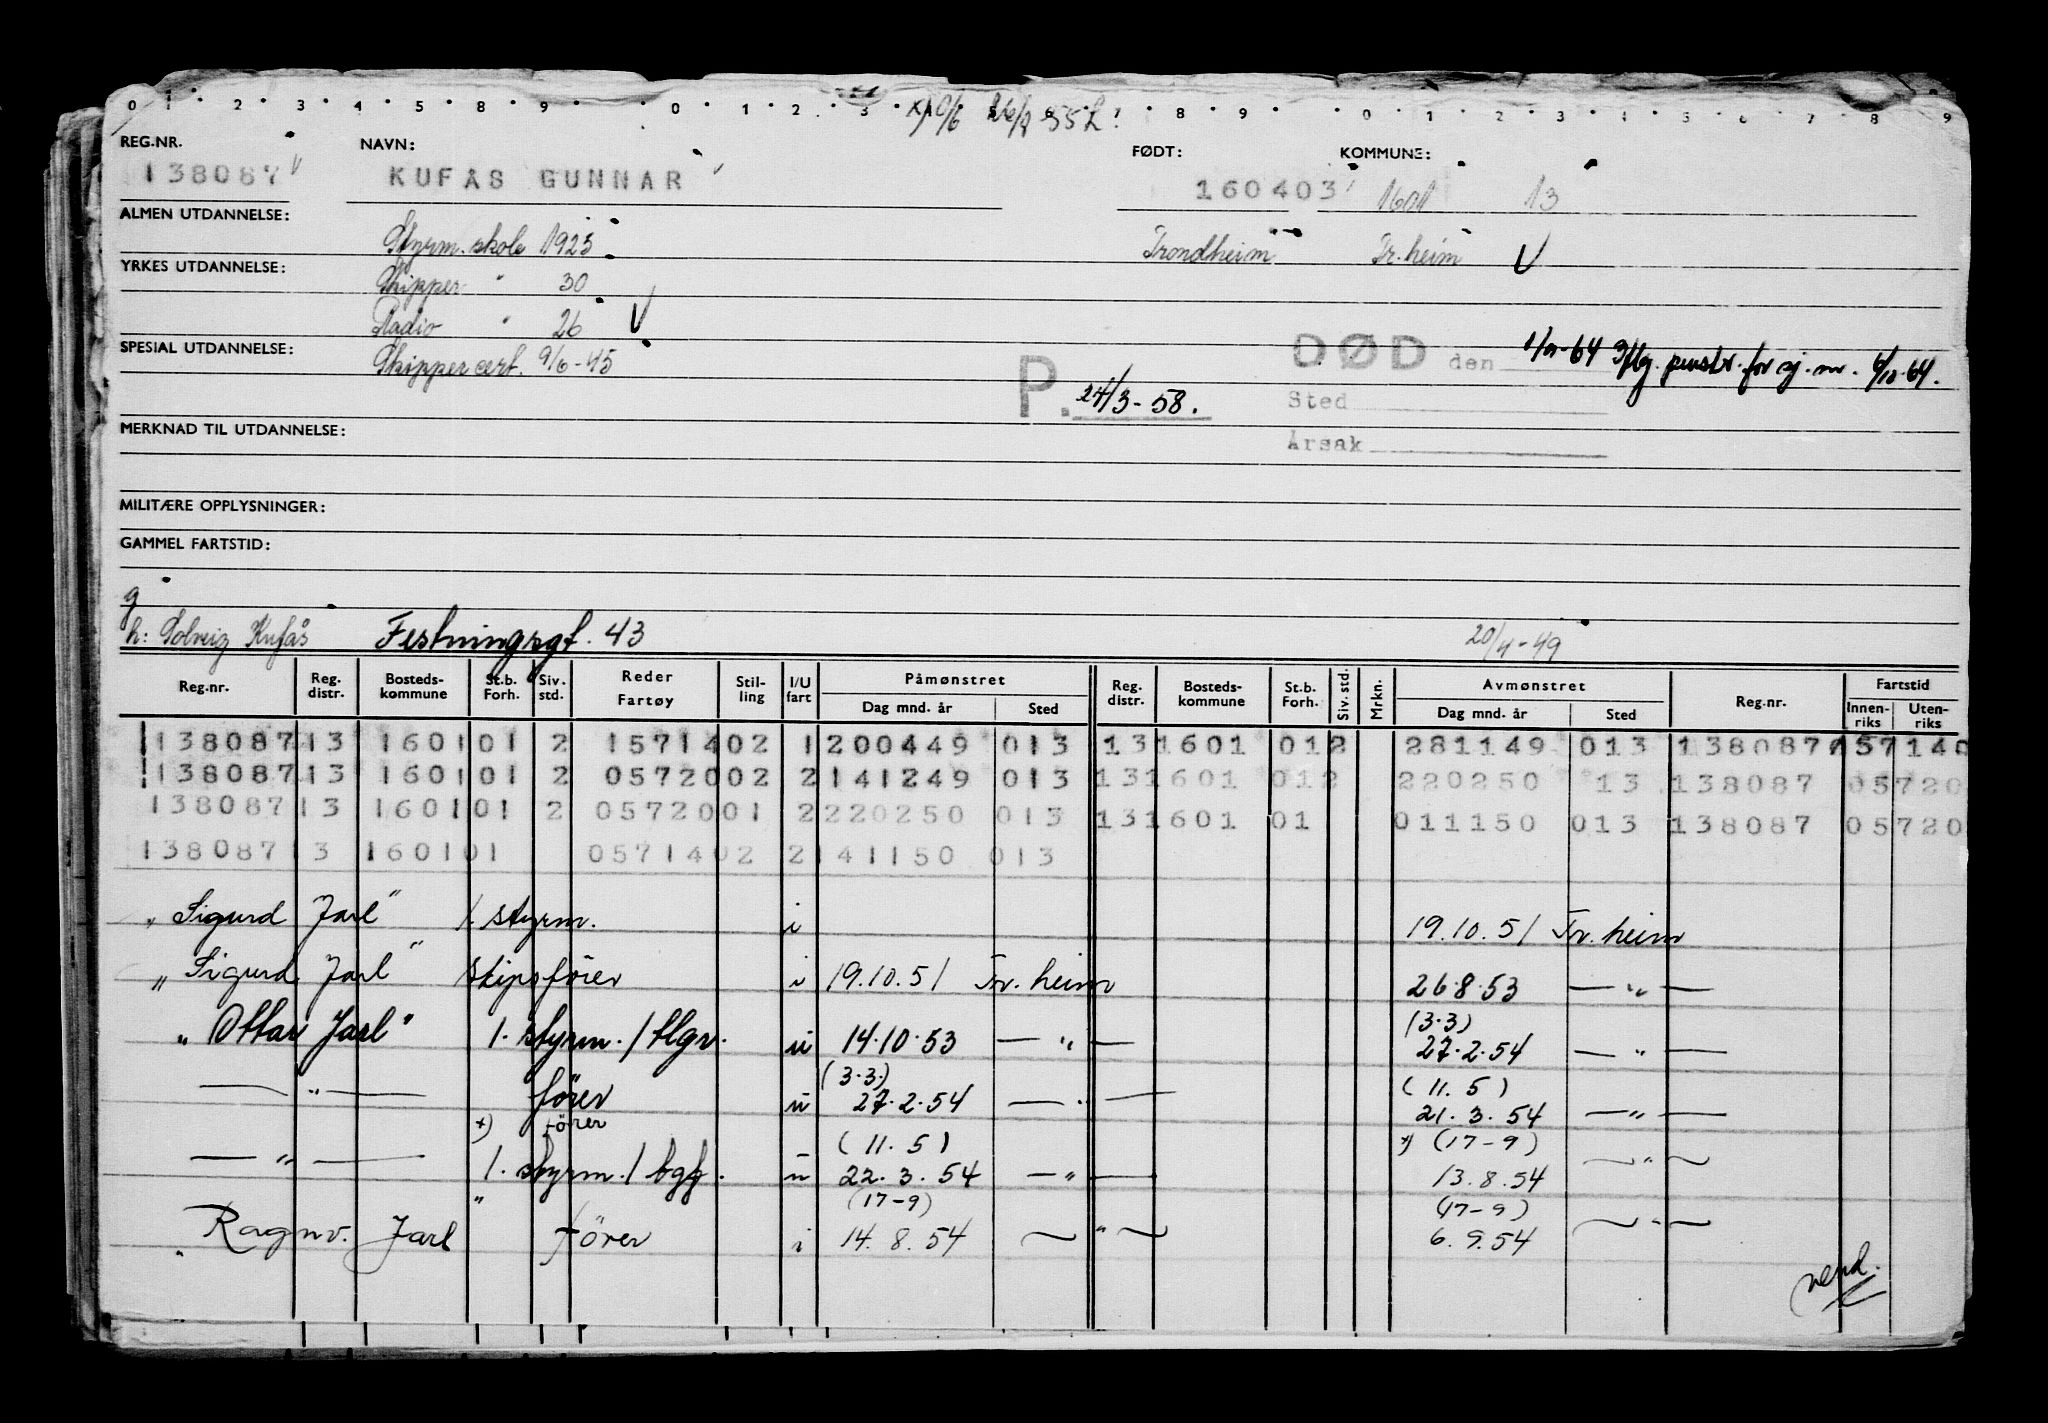 0 1 2 3 4 5 8 9 0 1 2 3 4 5 6 7 8 9 0 1 2 3 4 5 6 7 8 9
REG.NR. NAVN: FØDT: KOMMUNE:
138087 KUFÅS GUNNAR 160403 1601 13
ALMEN UTDANNELSE:
Styrm. skole 1925 Trondheim Tr. heim V
YRKES UTDANNELSE:
Skipper " 30
Radio " 26 V
SPESIAL UTDANNELSE: DØD den
Skippercert. 9/6-45
P. 24/3-58. Sted
MERKNAD TIL UTDANNELSE: Årsak
MILITÆRE OPPLYSNINGER:
GAMMEL FARTSTID:
g
h: Solveig Kufås Festningsgt. 43 20/4-49
Reg.nr. Reg. distr. Bosteds-kommune St.b. Forh. Siv. std. Reder Fartøy Stil-ling I/U fart Påmønstret Dag mnd. år Sted Reg. distr. Bosteds-kommune St.b. Forh. Siv. std. Mrkn. Avmønstret Dag mnd. år Sted Reg.nr. Fartstid Innen-riks Uten-riks
138087 13 1601 01 2 15714 02 1 200449 013 13 1601 01 2 281149 013 138087 157140
138087 13 1601 01 2 05720 02 2 141249 013 13 1601 01 2 220250 13 138087 05720
138087 13 1601 01 2 05720 01 2 220250 013 13 1601 01 011150 013 138087 05720
138087 13 1601 01 05714 02 2 141150 013
" Sigurd Jarl" 1. styrm. i 19.10.51 Tr. heim
" Sigurd Jarl" skipsfører i 19.10.51 Tr. heim 26.8.53 — " —
" Ottar Jarl" 1. styrm. / tlgr. u 14.10.53 — " — (3.3) 27.2.54 — " —
— " — fører u (3.3.) 27.2.54 — " — (11.5) 21.3.54 — " —
x) fører
— " — 1. styrm. / bgf. u (11.5) 22.3.54 — " — x) (17-9) 13.8.54 — " —
" Ragnv. Jarl" fører i (17-9) 14.8.54 — " — (17-9) 6.9.54 — " —
vend.